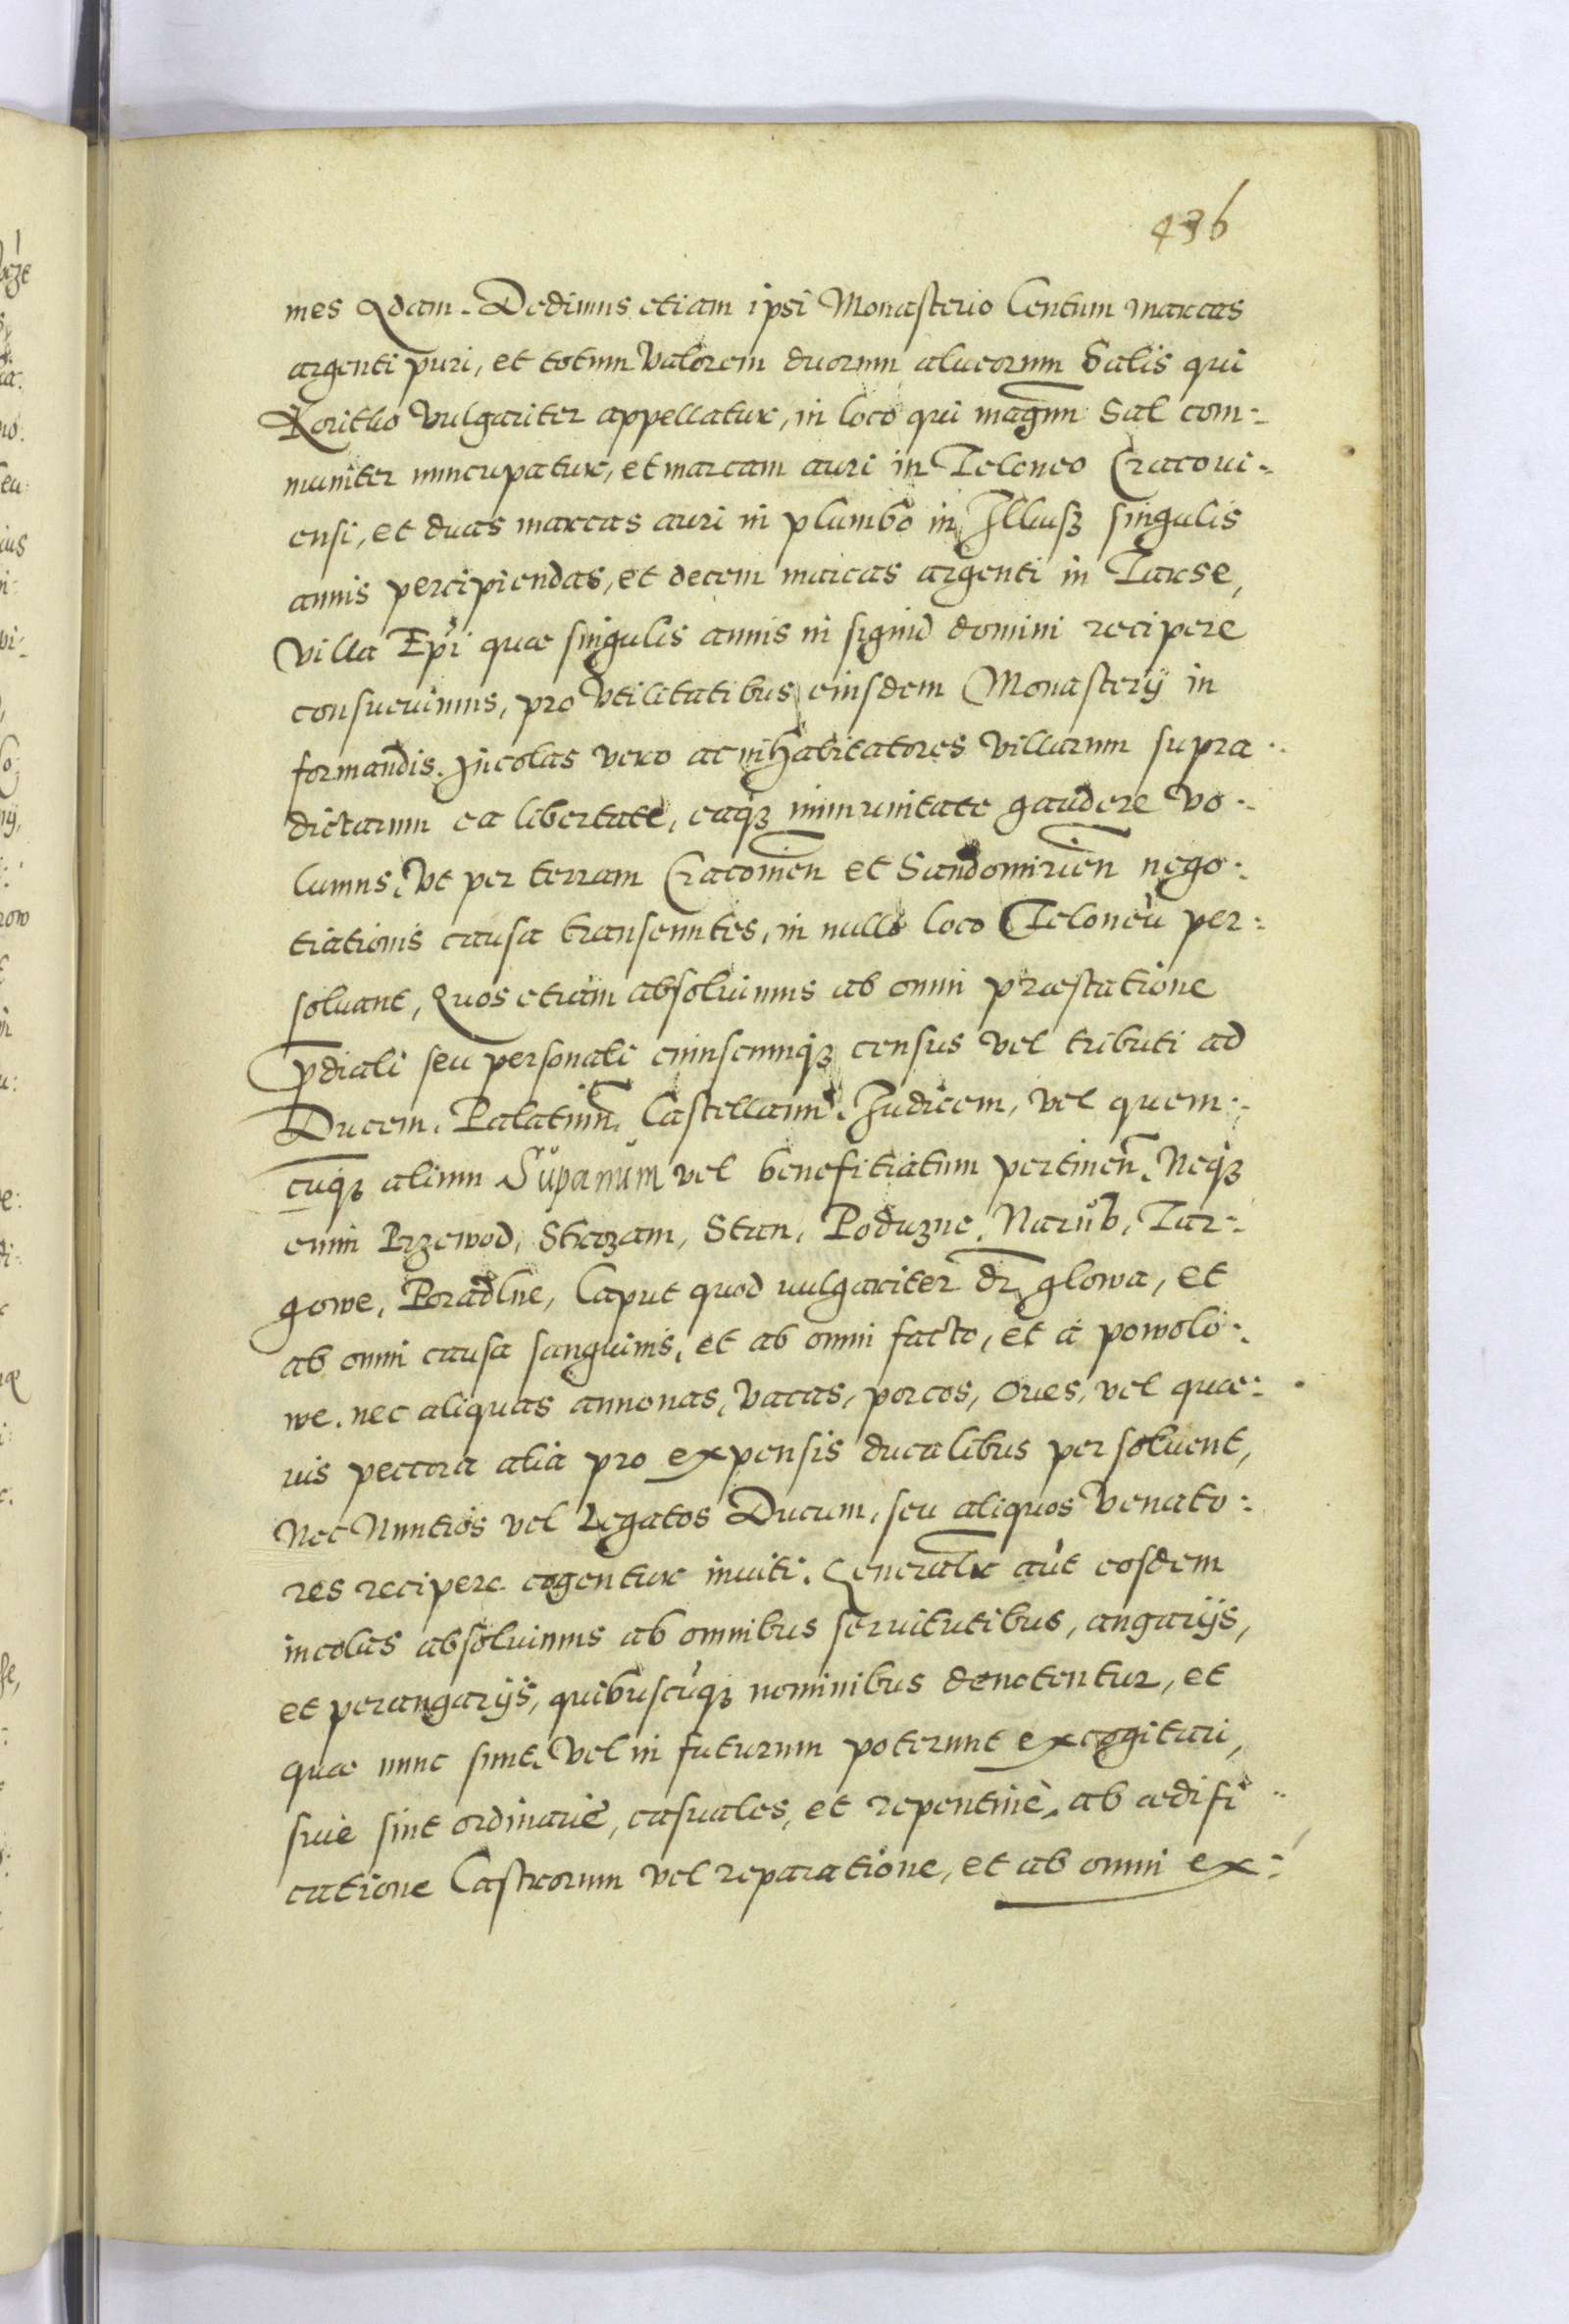 436
mes Qdam. Dedimus etiam ipsi Monasterio Centum marcas
argenti puri, et totum Valorem duorum alueorum Salis qui
Koritho Vulgariter appellatur, in loco qui magnum Sal com-
muniter nuncupatur, et marcam auri in Teloneo Cracoui-
ensi, et duas marcas auri in plumbo in Illusz singulis
annis percipiendas, et decem marcas argenti in Tarse,
Villa Epi quae singulis annis in signũ domini recipere
consueuimus, pro Vtilitatibus eiusdem Monasterÿ in
formandis. Incolas vero ac inhabitatores Villarum supra-
dictarum ea libertate, eaqz immunitate gaudere Vo-
lumus, Vt per terram Cracouien et Sandomirien nego-
tiationis causa transeuntes, in nullo loco Teloneũ per-
soluant, Quos etiam absoluimus ab omni praestatione
p̃diali seu personali cuiuscumqz census vel tributi ad
Ducem, Palatinũ, Castellanũ, Judicem, vel quem-
cũqz alium Supanum vel benefitiatum pertineñ. Neqz
enim Przewod, Strozam, Stan, Poduzne, Narub, Tar-
gowe, Poradlne, Caput quod uulgariter dr̃ glowa, et
ab omni causa sanguinis, et ab omni facto, et à powolo-
we. nec aliquas annonas, vacas, porcos, oues, vel quae-
uis peccora alia pro expensis ducalibus persoluent,
Nec Nuntios vel Legatos Ducum, seu aliquos Venato-
res recipere cogentur inuiti. Generalr aũt eosdem
incolas absoluimus ab omnibus seruitutibus, angarÿs,
et perangarÿs, quibuscũqz nominibus denotentur, et
quae nunc sunt, Vel in futurum poterunt excogitari,
siuè sint ordinariè, casuales, et repentinè, ab aedifi-
catione Castrorum vel reparatione, et ab omni ex-